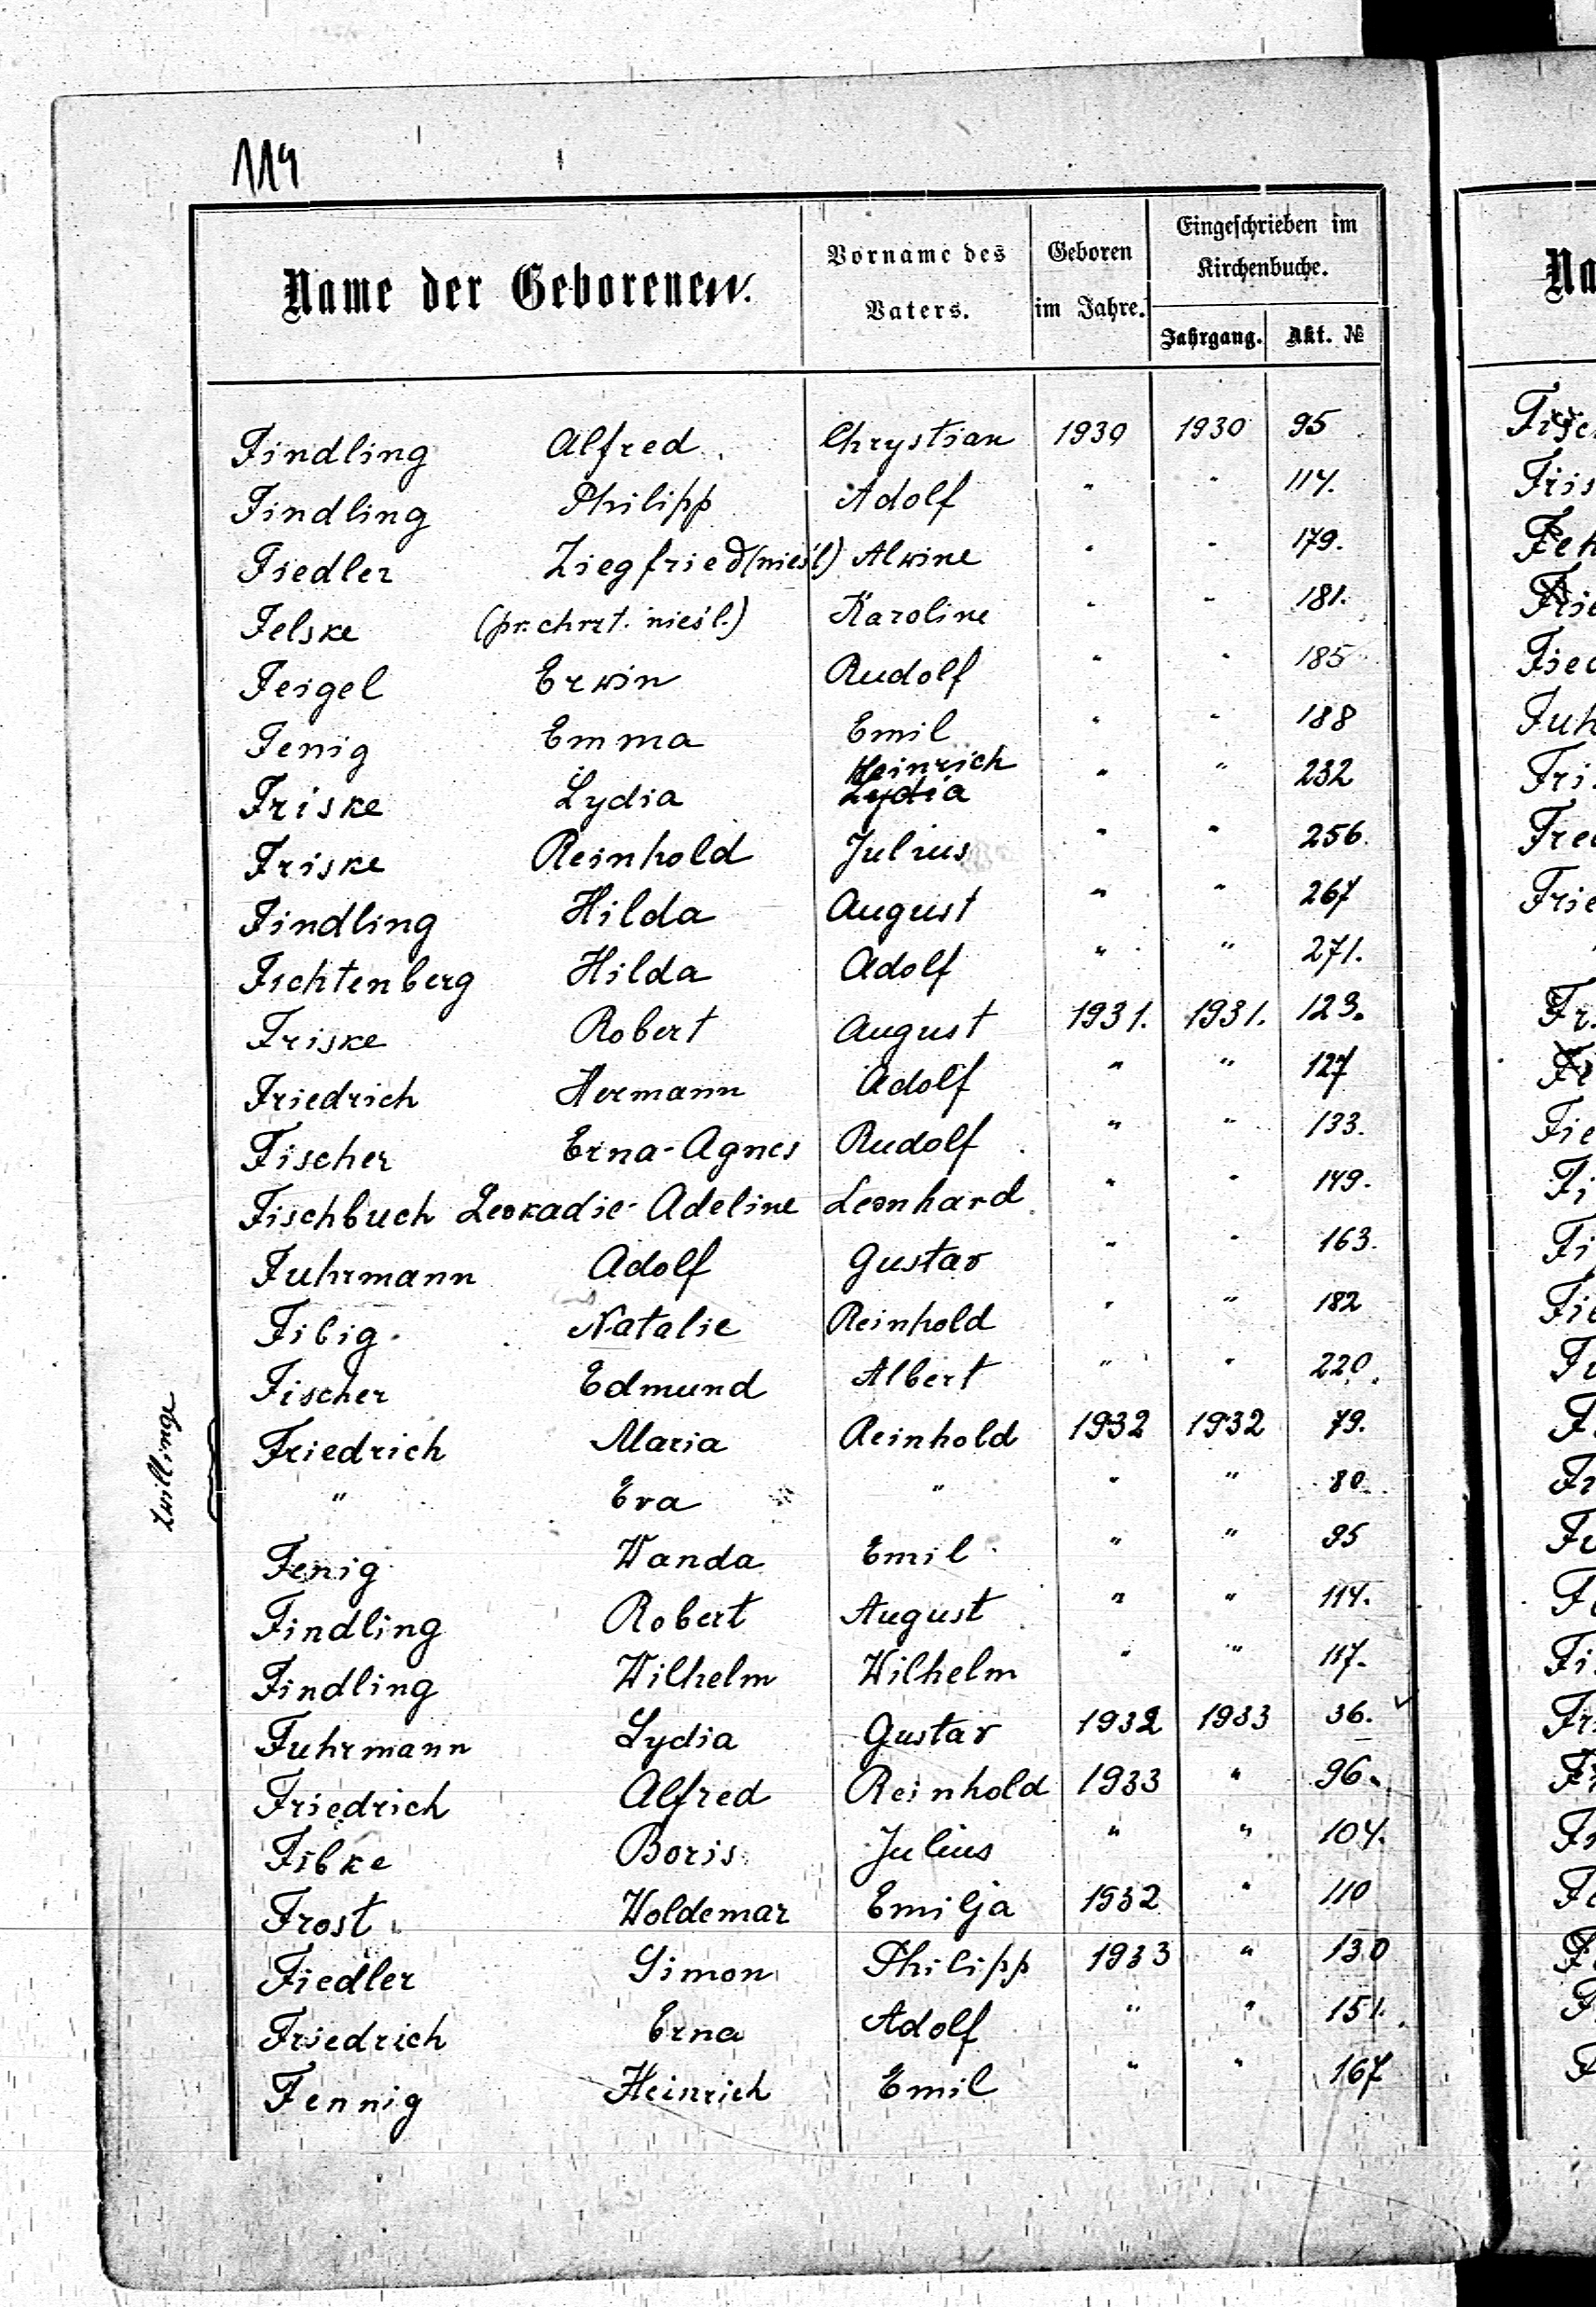 114
Name der Geborenen.
Vorname des Vaters.
Geboren im Jahre.
Eingeschrieben im Kirchenbuche.
Jahrgang. Akt. №
Findling Alfred Chrystian 1930 1930 95
Findling Philipp Adolf " " 114.
Fiedler Ziegfried (nieśl) Alwine " " 179.
Felske (pr. chrzt. nieśl.) Karoline " " 181.
Feigel Erwin Rudolf " " 185
Fenig Emma Emil " " 188
Friske Lydia Heinrich Lydia " " 232
Friske Reinhold Julius " " 256.
Findling Hilda August " " 267
Fichtenberg Hilda Adolf " " 271.
Friske Robert August 1931. 1931. 123.
Friedrich Hermann Adolf " " 127
Fischer Erna-Agnes Rudolf " " 133.
Fischbuch Leokadie-Adeline Leonhard " " 149.
Fuhrmann Adolf Gustav " " 163.
Fibig Natalie Reinhold " " 182
Fischer Edmund Albert " " 220.
Zwillinge
Friedrich Maria Reinhold 1932 1932 79.
" Eva " " " 80.
Fenig Wanda Emil " " 95
Findling Robert August " " 114.
Findling Wilhelm Wilhelm " " 117.
Fuhrmann Lydia Gustav 1932 1933 36.
Friedrich Alfred Reinhold 1933 " 96.
Fibke Boris Julius " " 104.
Frost Woldemar Emilja 1932 " 110
Fiedler Simon Philipp 1933 " 130
Friedrich Erna Adolf " " 151.
Fennig Heinrich Emil " " 167